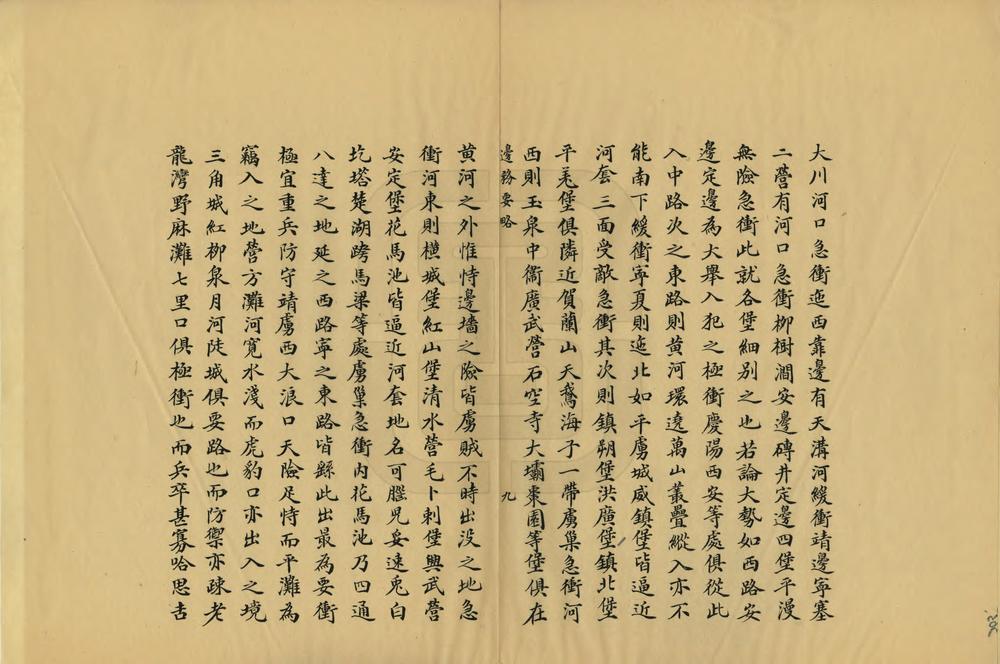 大川河口急衝迤西靠邊有天溝河緩衝靖邊寧塞
二營有河口急衝柳樹澗安邊磚井定邊四堡平漫
無險急衝此就各堡細別之也若論大勢如西路安
邊定邊為大舉入犯之極衝慶陽西安等處俱從此
入中路次之東路則黄河環遶萬山叢疊縱入亦不
能南下緩衝寧夏則迤北如平虜城威鎮堡皆逼近
河套三面受敵急衝其次則鎮朔堡洪廣堡鎮北堡
平羌堡俱隣近賀蘭山天鵞海子一帶虜巢急衝河
西則玉泉中衛廣武營石空寺大壩棗園等堡俱在
邊務要略
九
黄河之外惟恃邊墻之險皆虜賊不時出没之地急
衝河東則横城堡紅山堡清水營毛卜剌堡興武營
安定堡花馬池皆逼近河套地名可朢皃妥速兎白
圪塔楚湖跨馬梁等處虜巢急衝内花馬池乃四通
八達之地延之西路寧之東路皆繇此出最為要衝
極宜重兵防守靖虜西大浪口天險足恃而平灘為
竊入之地營方灘河寛水淺而虎豹口亦出入之境
三角城紅柳泉月河陡城俱要路也而防禦亦疎老
龍灣野麻灘七里口俱極衝也而兵卒甚寡哈思吉